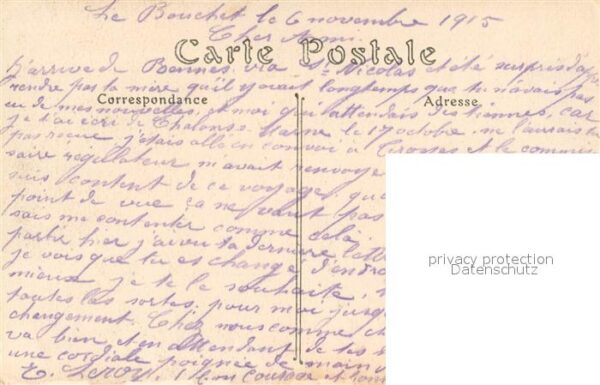 Le Bouchet le 6 novembre 1915
Cher Ami.
Carte Postale
J'arrive de Bannes via St Nicolas et été surpris d'ap
rendre par la mère qu'il y avait longtemps que tu n'avais pas
Correspondance
Adresse
eu de mes nouvelles, et moi qui attendais des tiennes, car
je t'ai écri de Chalons s Marne le 17 octobre. ne l'aurais tu
pas reçue j'étais allé en convoi à Crosses et le commis
saire régulateur m'avait renvoyé
suis content de ce voyage, qu
point de vue ça ne vaut pas
sais me contenter comme cela.
partir hier j'ai eu ta dernière lettre
je vois que tu es changé d'endro
mieux je te le souhaite,
toutes les sortes. pour moi jusq
changement. Chez nous comme ch
va bien, et en attendant de tes
une cordiale poignée de main
E. Leroy. Bon courage et bonn
privacy protection
Datenschutz